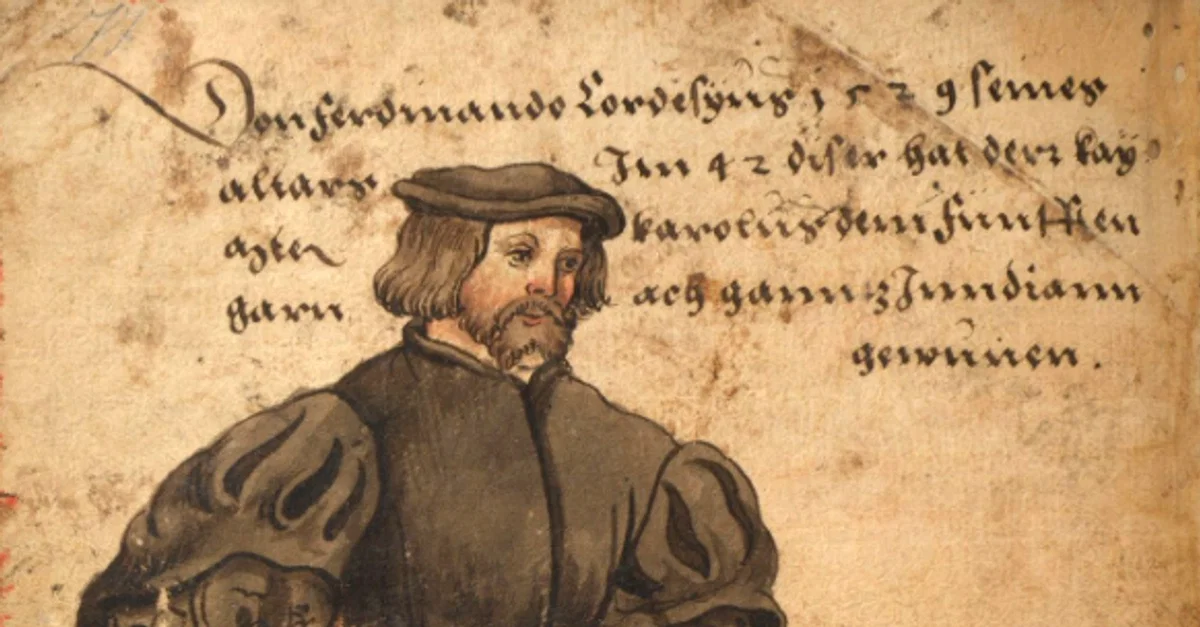 Don ferdinando Cordesyus 1529 seines
altars Im 42 diser hat derr kaÿ
karolus dem funfften
garn ach gannz Jnndiann
gewunen.